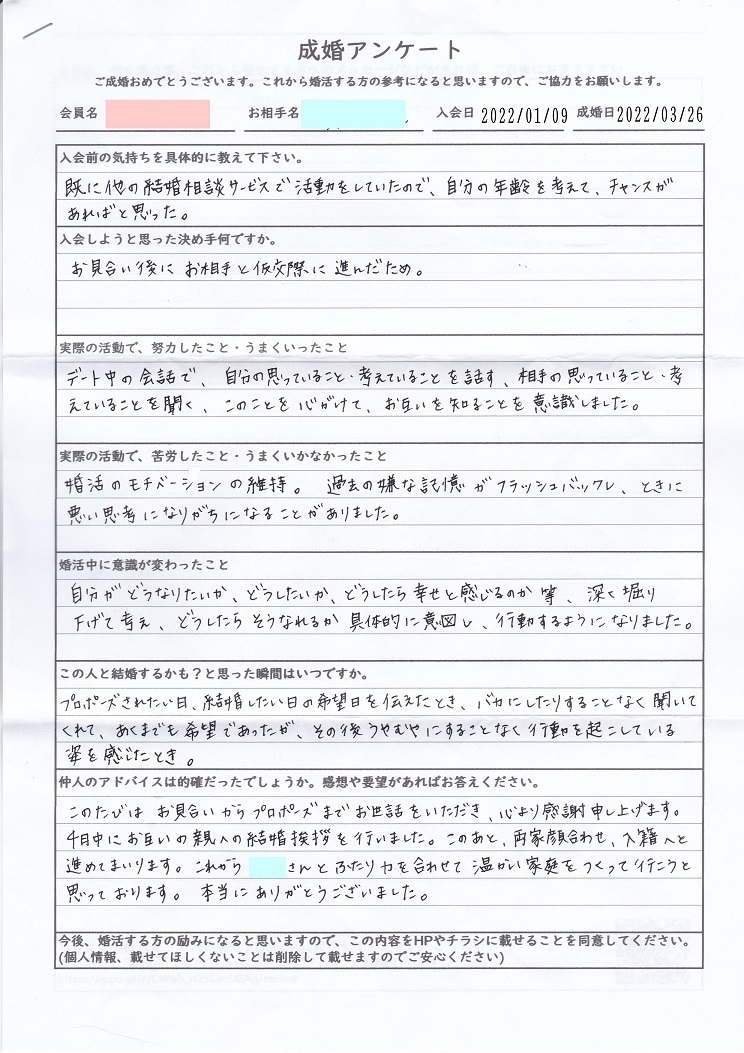 成婚アンケート
ご成婚おめでとうございます。これから婚活する方の参考になると思いますので、ご協力をお願いします。
会員名 お相手名 入会日 2022/01/09 成婚日2022/03/26
入会前の気持ちを具体的に教えて下さい。
既に他の結婚相談サービスで活動をしていたので、自分の年齢を考えて、チャンスが
あればと思った。
入会しようと思った決め手何ですか。
お見合い後にお相手と仮交際に進んだため。
実際の活動で、努力したこと・うまくいったこと
デート中の会話で、自分の思っていること・考えていることを話す、相手の思っていること・考
えていることを聞く、このことを心がけて、お互いを知ることを意識しました。
実際の活動で、苦労したこと・うまくいかなかったこと
婚活のモチベーションの維持。過去の嫌な記憶がフラッシュバックし、ときに
悪い思考になりがちになることがありました。
婚活中に意識が変わったこと
自分がどうなりたいか、どうしたいか、どうしたら幸せと感じるのか等、深く掘り
下げて考え、どうしたらそうなれるか具体的に意図し、行動するようになりました。
この人と結婚するかも?と思った瞬間はいつですか。
プロポーズされたい日、結婚したい日の希望日を伝えたとき、バカにしたりすることなく聞いて
くれて、あくまでも希望であったが、その後うやむやにすることなく行動を起こしている
姿を感じたとき。
仲人のアドバイスは的確だったでしょうか。感想や要望があればお答えください。
このたびはお見合いからプロポーズまでお世話をいただき、心より感謝申し上げます。
4月中にお互いの親への結婚挨拶を行いました。このあと、両家顔合わせ、入籍へと
進めてまいります。これから さんとふたり力を合わせて温かい家庭をつくって行こうと
思っております。本当にありがとうございました。
今後、婚活する方の励みになると思いますので、この内容をHPやチラシに載せることを同意してください。
(個人情報、載せてほしくないことは削除して載せますのでご安心ください)